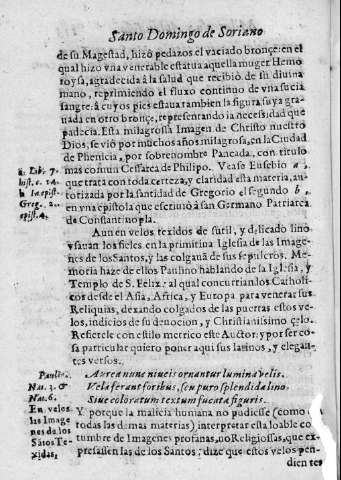 Santo Domingo de Soriano
de su Magestad, hizo pedazos el vaciado bronçe: en el
qual hizo vna venerable estatua aquella muger Hemo
roysa, agradecida à la salud que recibiò de su diuina
mano, reprimiendo el fluxo continuo de vna sucia
sangre: à cuyos pies estaua tambien la figura suya gra
uada en otro bronçe, representando la necessidad que
padecia. Esta milagrosa Imagen de Christo nuestro
Dios, se viò por muchos años milagrosa, en la Ciudad
de Phenicia, por sobrenombre Paneada, con titulo
mas comun Cessarea de Philipo. Vease Eusebio a,
que trata con toda certeza, y claridad esta materia, au-
torizada por la santidad de Gregorio el segundo b,
en vna epistola que escriuiò a san Germano Patriarca
de Constantinopla.
a. Lib. 7.
hist. c. 14.
b. in epist.
Greg. 2.
epist. 4.
Aun en velos texidos de sutil, y delicado lino
vsauan los fieles en la primitiua Iglesia de las Image
nes de los Santos, y las colgauã de sus sepulcros. Me
moria haze de ellos Paulino hablando de la Iglesia, y
Templo de S. Felix: al qual concurrian los Catholi-
cos desde el Asia, Africa, y Europa para venerar sus
Reliquias, dexando colgados de las puertas estos ve-
los, indicios de su deuocion, y Christianissimo çelo.
Refierele con estilo metrico este Auctor: y por ser co
sa particular quiero poner aqui sus latinos, y elegan-
tes versos.
Paulin.
Nat. 3. &
Nat. 6.
Aurea nunc niueis ornantur lumina velis.
Vela ferant foribus, seu puro splendida lino.
Siue coloratum textum fucata figuris.
En velos
las Image
nes de los
Sãtos Te-
xidas,
Y porque la malicia humana no pudiesse (como
todas las demas materias) interpretar esta loable co
stumbre de Imagenes profanas, no Religiossas, que ex-
pressassen las de los Santos; dize que estos velos pen-
dien tes